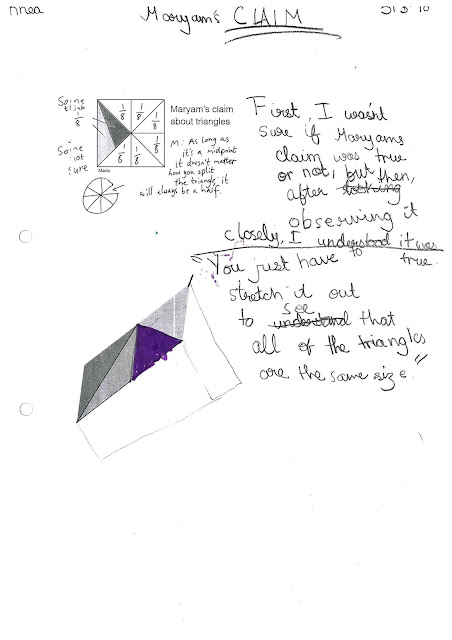 nnea
Maryam's CLAIM
Some
think
1/8
Some
not
sure
1/8 1/8 1/8
1/8
1/8
1/8 1/8
Maria
Maryam's claim
about triangles
M: As long as
it's a midpoint
it doesn't matter
how you split
the triangle it
will always be a half.
First, I wasn't
sure if Maryams
claim was true
or not, but then,
after
observing it
closely, I understood it was
true.
"You just have to
stretch it out
to see understand that
all of the triangles
are the same size."